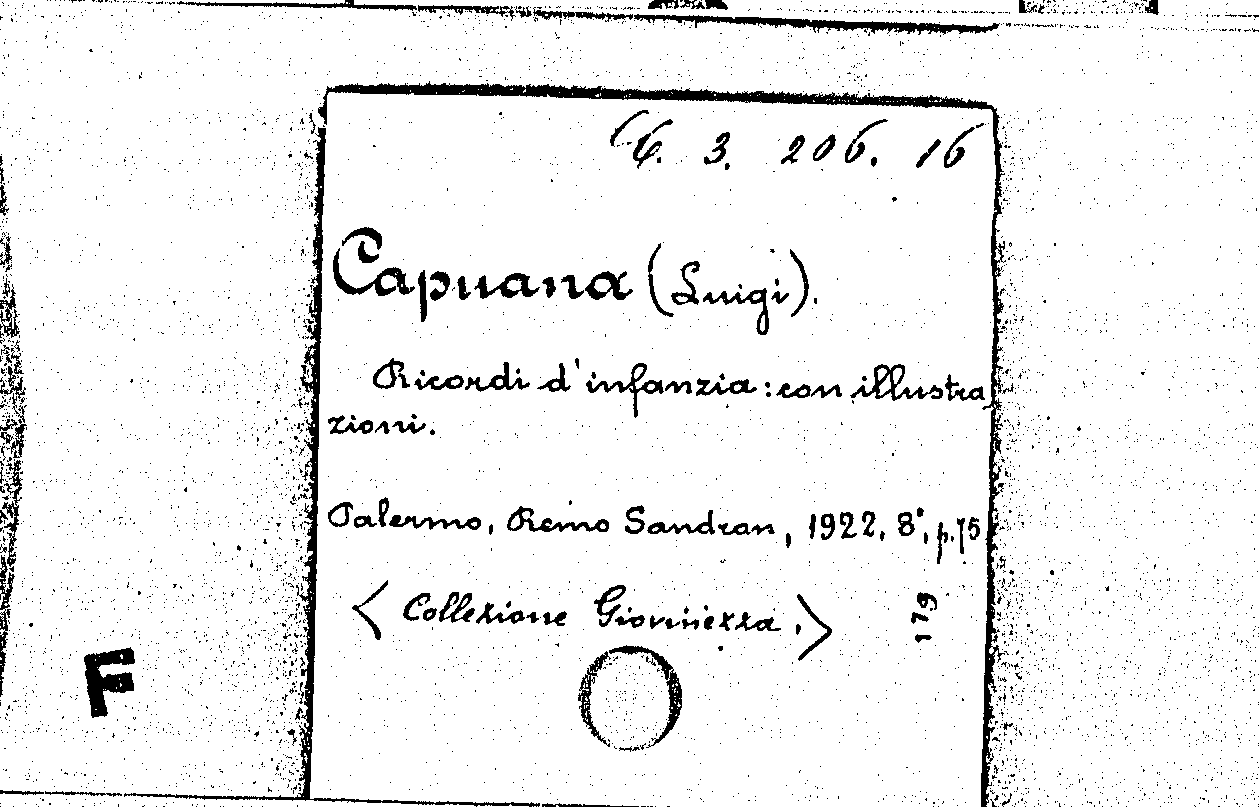 6. 3. 206. 16
Capuana (Luigi).
Ricordi d'infanzia: con illustra
zioni.
Palermo, Remo Sandron, 1922, 8°, p. 75
< Collezione Giovinezza. >
179
F